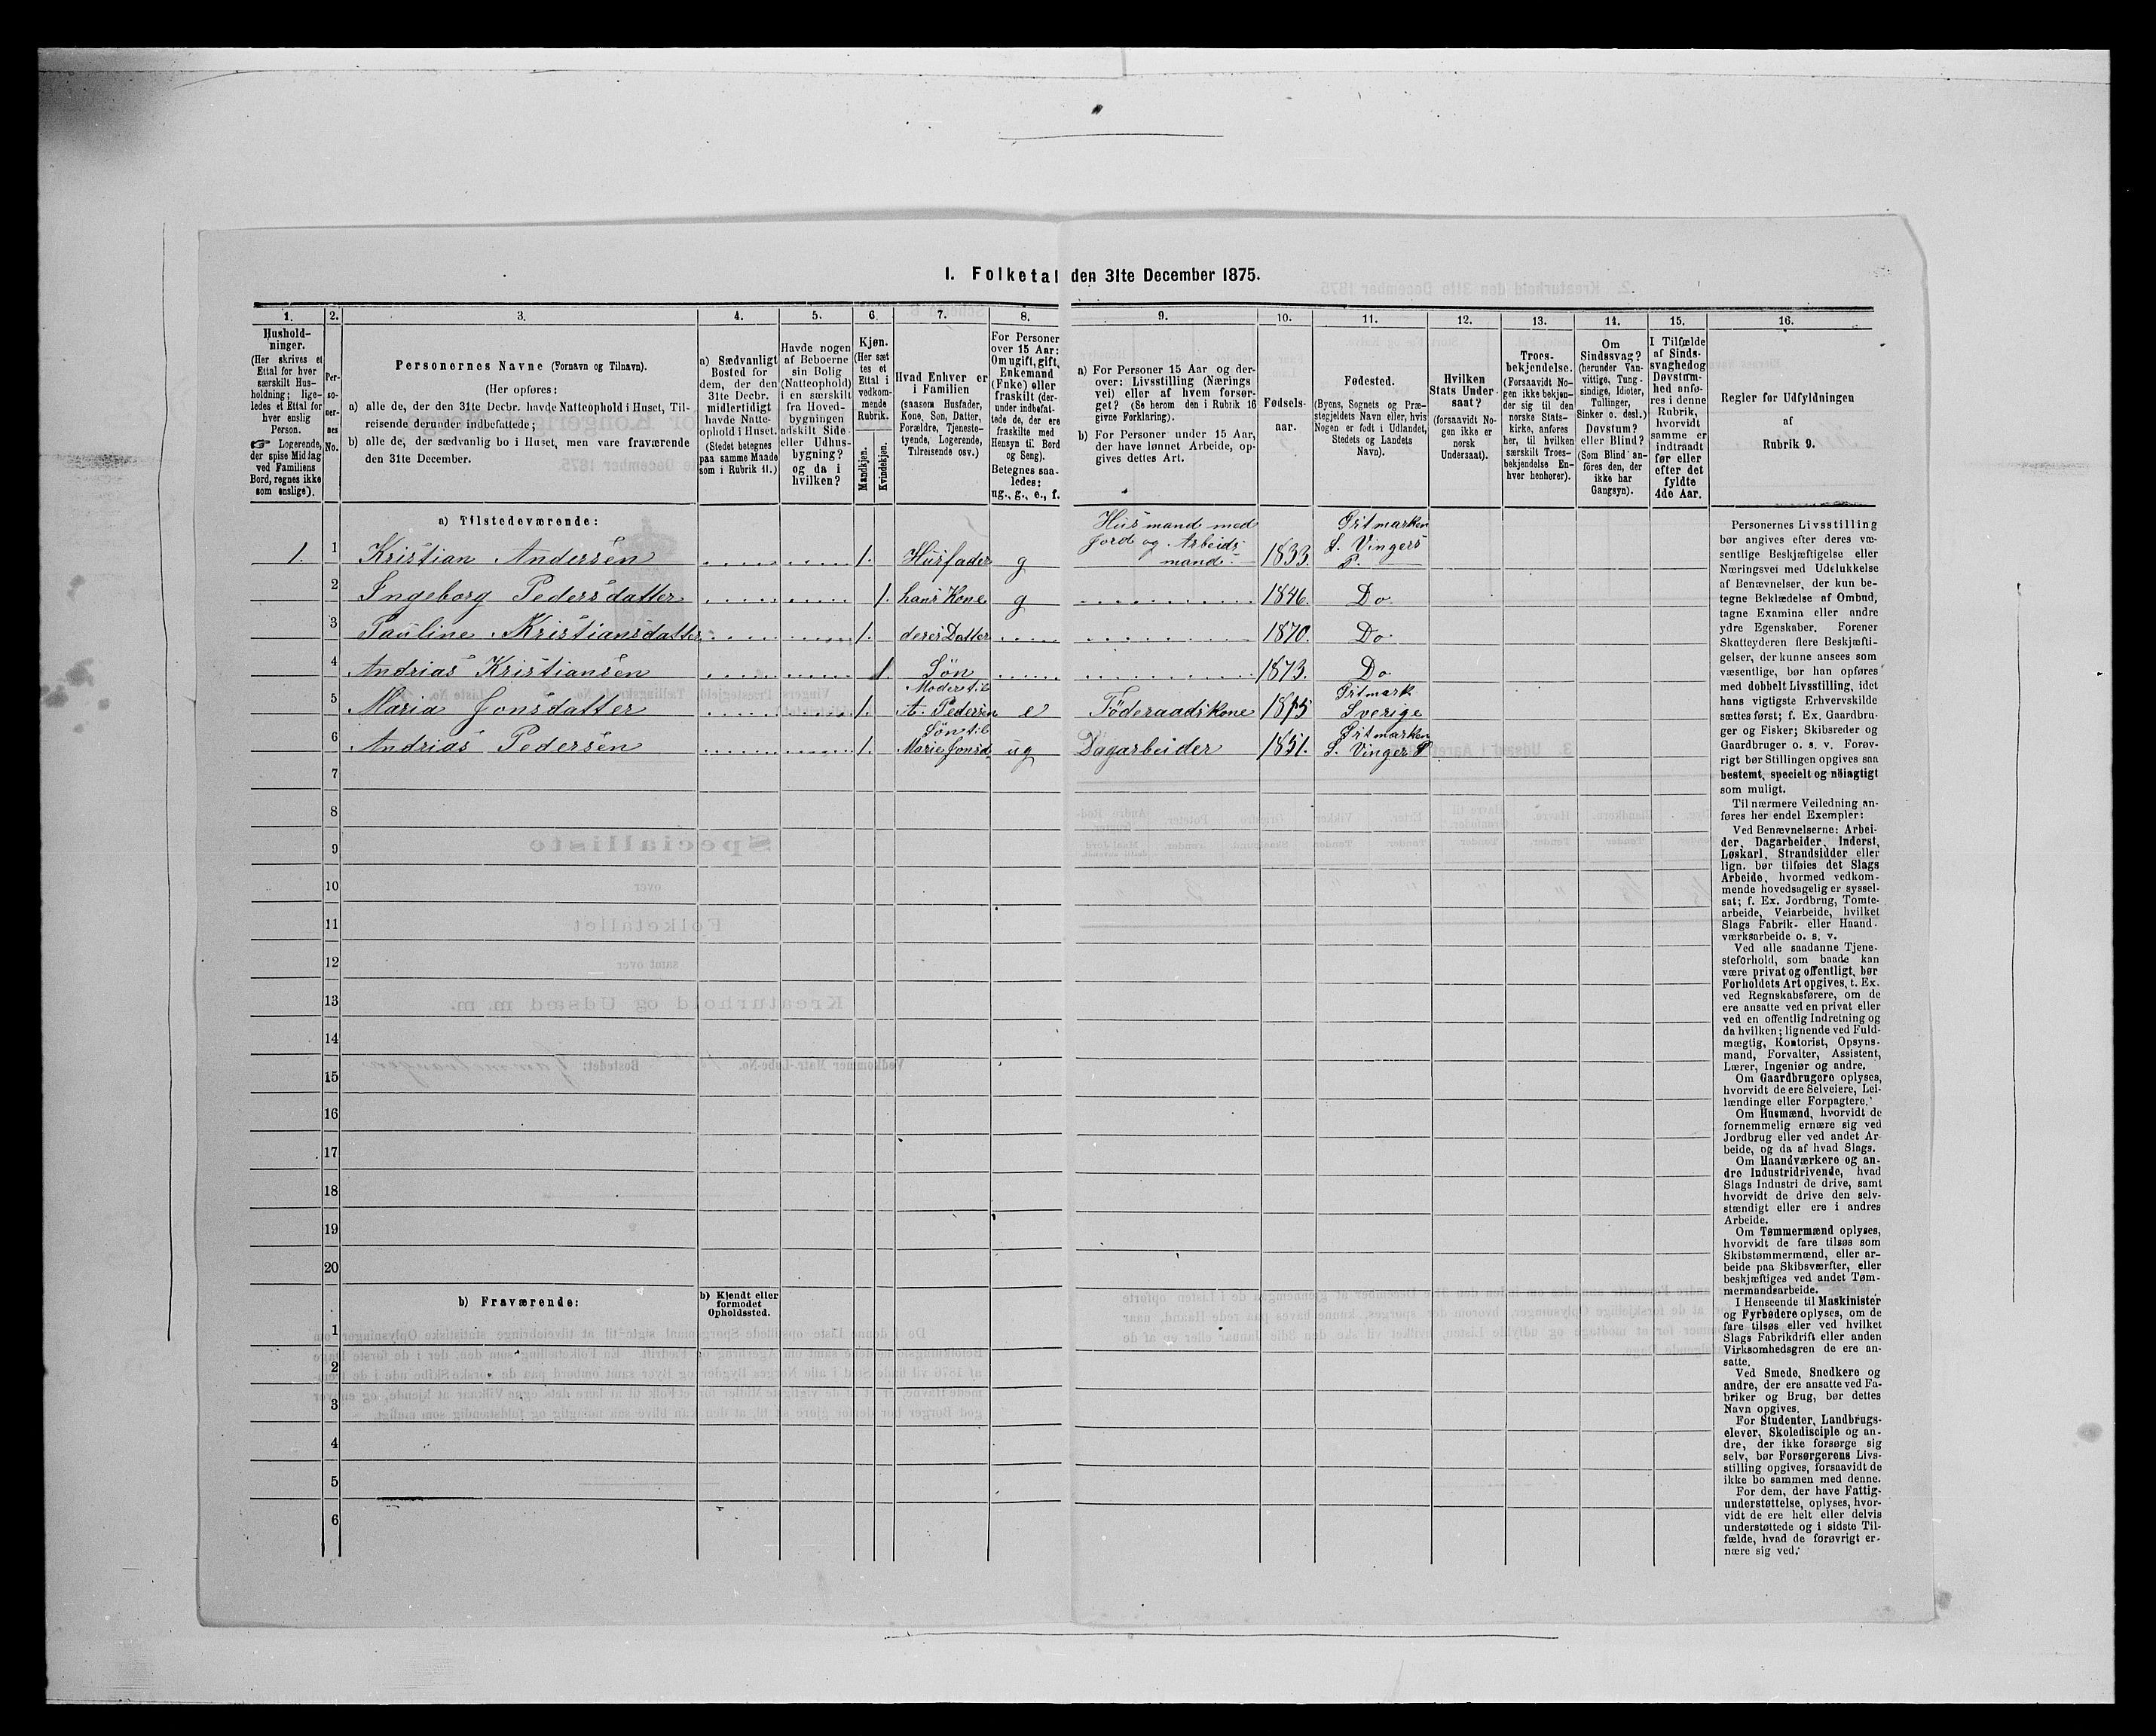 I. Folketal den 31te December 1875.
1. 2. 3. 4. 5. 6. 7. 8. 9. 10. 11. 12. 13. 14. 15. 16.
Hushold-
ninger.
(Her skrives et
Ettal for hver
særskilt Hus-
holdning; lige-
ledes et Ettal for
hver enslig
Person.
☞ Logerende,
der spise Middag
ved Familiens
Bord, regnes ikke
som enslige).
Per-
so-
ner-
nes
No.
Personernes Navne (Fornavn og Tilnavn).
(Her opføres:
a) alle de, der den 31te Decbr. havde Natteophold i Huset, Til-
reisende derunder indbefattede;
b) alle de, der sædvanlig bo i Huset, men vare fraværende
den 31te December.
a) Sædvanligt
Bosted for
dem, der den
31te Decbr.
midlertidigt
havde Natte-
ophold i Huset.
(Stedet betegnes
paa samme Maade
som i Rubrik 11.)
Havde nogen
af Beboerne
sin Bolig
(Natteophold)
i en særskilt
fra Hoved-
bygningen
adskilt Side-
eller Udhus-
bygning?
og da i
hvilken?
Kjøn.
(Her sæt
tes et
Ettal i
vedkom-
mende
Rubrik.
Mandkjøn.
Kvindekjøn.
Hvad Enhver er
i Familien
(saasom Husfader,
Kone, Søn, Datter,
Forældre, Tjeneste-
tyende, Logerende,
Tilreisende osv.)
For Personer
over 15 Aar:
Om ugift, gift,
Enkemand
(Enke) eller
fraskilt (der-
under indbefat-
tede de, der ere
fraskilte med
Hensyn til Bord
og Seng).
Betegnes saa-
ledes:
ug., g., e., f.
a) For Personer 15 Aar og der-
over: Livsstilling (Nærings
vei) eller af hvem forsør-
get? (Se herom den i Rubrik 16
givne Forklaring).
b) For Personer under 15 Aar,
der have lønnet Arbeide, op-
gives dettes Art.
Fødsels-
aar.
Fødested.
(Byens, Sognets og Præ-
stegjeldets Navn eller, hvis
Nogen er født i Udlandet,
Stedets og Landets
Navn).
Hvilken
Stats Under-
saat?
(forsaavidt No-
gen ikke er
norsk
Undersaat).
Troes-
bekjendelse.
(Forsaavidt No-
gen ikke bekjen-
der sig til den
norske Stats-
kirke, anføres
her, til hvilken
særskilt Troes-
bekjendelse En-
hver henhører).
Om
Sindssvag?
(herunder Van-
vittige, Tung-
sindige, Idioter,
Tullinger,
Sinker o. desl.)
Døvstum?
eller Blind?
(Som Blind an-
føres den, der
ikke har
Gangsyn).
I Tilfælde
af Sinds-
svaghed og
Døvstum-
hed anfø-
res i denne
Rubrik,
hvorvidt
samme er
indtraadt
før eller
efter det
fyldte
4de Aar.
Regler for Udfyldningen
af
Rubrik 9.
a) Tilstedeværende:
1. 1 Kristian Andersen 1. Husfader g Husmand med Jord og Arbeids mand 1833. Gritmarken S. Vingers P.
2 Ingeborg Pedersdatter 1. hans Kone g 1846. Do
3 Pauline Kristiansdatter 1. deres Datter 1870. Do
4 Andrias Kristiansen 1. Søn 1873. Do
5 Maria Jonsdatter 1. Moder til A. Pedersen e Föderaadskone Gritmark Sverige
6 Andrias Pedersen 1. Søn til Marie Jonsd ug Dagarbeider 1851. Gritmarken S. Vinger P
7
8
9
10
11
12
13
14
15
16
17
18
19
20
b) Fraværende:
b) Kjendt eller
formodet
Opholdssted.
1
2
3
4
5
6
Personernes Livsstilling
bør angives efter deres væ-
sentlige Beskjæftigelse eller
Næringsvei med Udelukkelse
af Benævnelser, der kun be-
tegne Beklædelse af Ombud,
tagne Examina eller andre
ydre Egenskaber. Forener
Skatteyderen flere Beskjæfti-
gelser, der kunne ansees som
væsentlige, bør han opføres
med dobbelt Livsstilling, idet
hans vigtigste Erhvervskilde
sættes først; f. Ex. Gaardbru-
ger og Fisker; Skibsreder og
Gaardbruger o. s. v. Forøv-
rigt bør Stillingen opgives saa
bestemt, specielt og nöiagtigt
som muligt.
Til nærmere Veiledning an-
føres her endel Exempler:
Ved Benævnelserne: Arbei-
der, Dagarbeider, Inderst,
Løskarl, Strandsidder eller
lign. bør tilføies det Slags
Arbeide, hvormed vedkom-
mende hovedsagelig er syssel-
sat; f. Ex. Jordbrug, Tomte-
arbeide, Veiarbeide, hvilket
Slags Fabrik- eller Haand-
værksarbeide o. s. v.
Ved alle saadanne Tjene-
steforhold, som baade kan
være privat og offentligt, bør
Forholdets Art opgives, t. Ex.
ved Regnskabsførere, om de
ere ansatte ved en privat eller
ved en offentlig Indretning og
da hvilken; lignende ved Fuld-
mægtig, Kontorist, Opsyns-
mand, Forvalter, Assistent,
Lærer, Ingeniør og andre.
Om Gaardbrugere oplyses,
hvorvidt de ere Selveiere, Lei-
lændinge eller Forpagtere.
Om Husmænd, hvorvidt de
fornemmelig ernære sig ved
Jordbrug eller ved andet Ar-
beide, og da af hvad Slags.
Om Haandværkere og an-
dre Industridrivende, hvad
Slags Industri de drive, samt
hvorvidt de drive den selv-
stændigt eller ere i andres
Arbeide.
Om Tømmermænd oplyses,
hvorvidt de fare tilsøs som
Skibstømmermænd, eller ar-
beide paa Skibsværfter, eller
beskjæftiges ved andet Tøm-
mermandsarbeide.
I Henseende til Maskinister
og Fyrbødere oplyses, om de
fare tilsøs eller ved hvilket
Slags Fabrikdrift eller anden
Virksomhedsgren de ere an-
satte.
Ved Smede, Snedkere og
andre, der ere ansatte ved Fa-
briker og Brug, bør dettes
Navn opgives.
For Studenter, Landbrugs-
elever, Skoledisciple og an-
dre, der ikke forsørge sig
selv, bør Forsørgerens Livs-
stilling opgives, forsaavidt de
ikke bo sammen med denne.
For dem, der have Fattig-
understøttelse, oplyses, hvor-
vidt de ere helt eller delvis
understøttede og i sidste Til-
fælde, hvad de forøvrigt er-
nære sig ved.